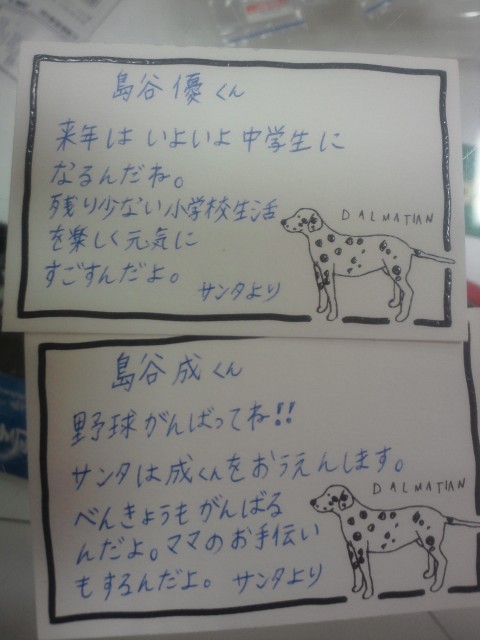 島谷優くん
来年はいよいよ中学生に
なるんだね。
残り少ない小学校生活
を楽しく元気に
すごすんだよ。
サンタより
DALMATIAN
島谷成くん
野球がんばってね!!
サンタは成くんをおうえんします。
べんきょうもがんばる
んだよ。ママのお手伝い
もするんだよ。 サンタより
DALMATIAN